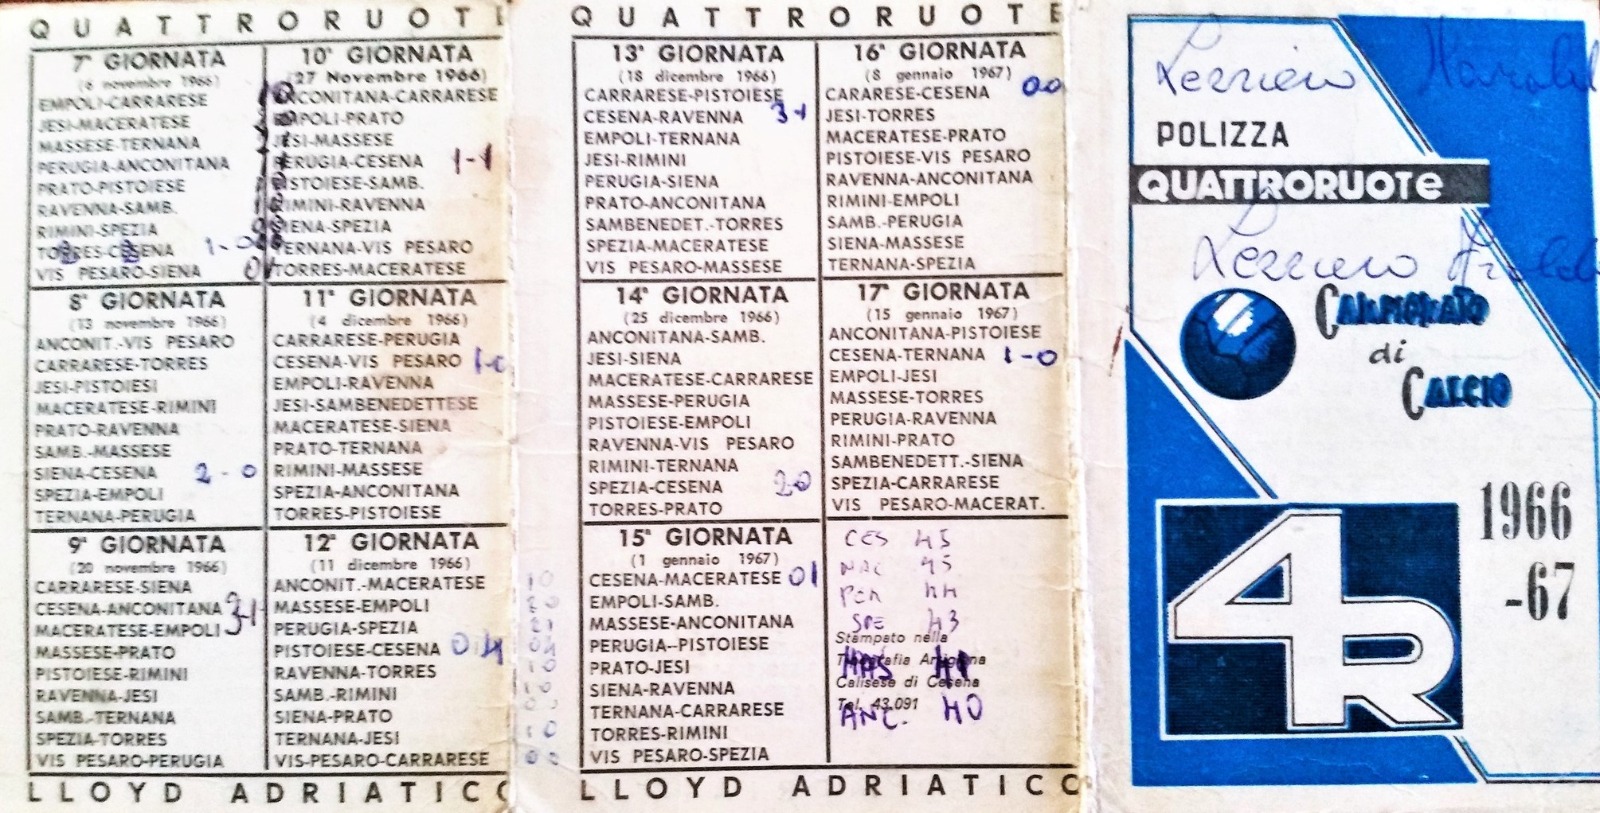 QUATTRORUOT
7ª GIORNATA
(6 novembre 1966)
EMPOLI-CARRARESE
JESI-MACERATESE
MASSESE-TERNANA
PERUGIA-ANCONITANA
PRATO-PISTOIESE
RAVENNA-SAMB.
RIMINI-SPEZIA
TORRES-CESENA 1-0
VIS PESARO-SIENA
8ª GIORNATA
(13 novembre 1966)
ANCONIT.-VIS PESARO
CARRARESE-TORRES
JESI-PISTOIESI
MACERATESE-RIMINI
PRATO-RAVENNA
SAMB.-MASSESE
SIENA-CESENA 2-0
SPEZIA-EMPOLI
TERNANA-PERUGIA
9ª GIORNATA
(20 novembre 1966)
CARRARESE-SIENA
CESENA-ANCONITANA
MACERATESE-EMPOLI
MASSESE-PRATO
PISTOIESE-RIMINI
RAVENNA-JESI
SAMB.-TERNANA
SPEZIA-TORRES
VIS PESARO-PERUGIA
10ª GIORNATA
(27 Novembre 1966)
ANCONITANA-CARRARESE
EMPOLI-PRATO
JESI-MASSESE
PERUGIA-CESENA 1-1
PISTOIESE-SAMB.
RIMINI-RAVENNA
SIENA-SPEZIA
TERNANA-VIS PESARO
TORRES-MACERATESE
11ª GIORNATA
(4 dicembre 1966)
CARRARESE-PERUGIA
CESENA-VIS PESARO 1-0
EMPOLI-RAVENNA
JESI-SAMBENEDETTESE
MACERATESE-SIENA
PRATO-TERNANA
RIMINI-MASSESE
SPEZIA-ANCONITANA
TORRES-PISTOIESE
12ª GIORNATA
(11 dicembre 1966)
ANCONIT.-MACERATESE
MASSESE-EMPOLI
PERUGIA-SPEZIA
PISTOIESE-CESENA 0 4
RAVENNA-TORRES
SAMB.-RIMINI
SIENA-PRATO
TERNANA-JESI
VIS-PESARO-CARRARESE
LLOYD ADRIATICO
QUATTRORUOTE
13ª GIORNATA
(18 dicembre 1966)
CARRARESE-PISTOIESE
CESENA-RAVENNA 3-1
EMPOLI-TERNANA
JESI-RIMINI
PERUGIA-SIENA
PRATO-ANCONITANA
SAMBENEDET.-TORRES
SPEZIA-MACERATESE
VIS PESARO-MASSESE
14ª GIORNATA
(25 dicembre 1966)
ANCONITANA-SAMB.
JESI-SIENA
MACERATESE-CARRARESE
MASSESE-PERUGIA
PISTOIESE-EMPOLI
RAVENNA-VIS PESARO
RIMINI-TERNANA
SPEZIA-CESENA 20
TORRES-PRATO
15ª GIORNATA
(1 gennaio 1967)
CESENA-MACERATESE 01
EMPOLI-SAMB.
MASSESE-ANCONITANA
PERUGIA--PISTOIESE
PRATO-JESI
SIENA-RAVENNA
TERNANA-CARRARESE
TORRES-RIMINI
VIS PESARO-SPEZIA
16ª GIORNATA
(8 gennaio 1967)
CARARESE-CESENA 00
JESI-TORRES
MACERATESE-PRATO
PISTOIESE-VIS PESARO
RAVENNA-ANCONITANA
RIMINI-EMPOLI
SAMB.-PERUGIA
SIENA-MASSESE
TERNANA-SPEZIA
17ª GIORNATA
(15 gennaio 1967)
ANCONITANA-PISTOIESE
CESENA-TERNANA 1-0
EMPOLI-JESI
MASSESE-TORRES
PERUGIA-RAVENNA
RIMINI-PRATO
SAMBENEDETT.-SIENA
SPEZIA-CARRARESE
VIS PESARO-MACERAT.
CES 45
MAC 45
PER 44
SPE 43
Stampato nella
Tipografia Artigiana
MAS 41
Calisese di Cesena
Tel. 43.091
ANC. 40
LLOYD ADRIATICO
POLIZZA
QUATTRORUOTe
CAMPIONATO
di
CALCIO
1966
-67
4R